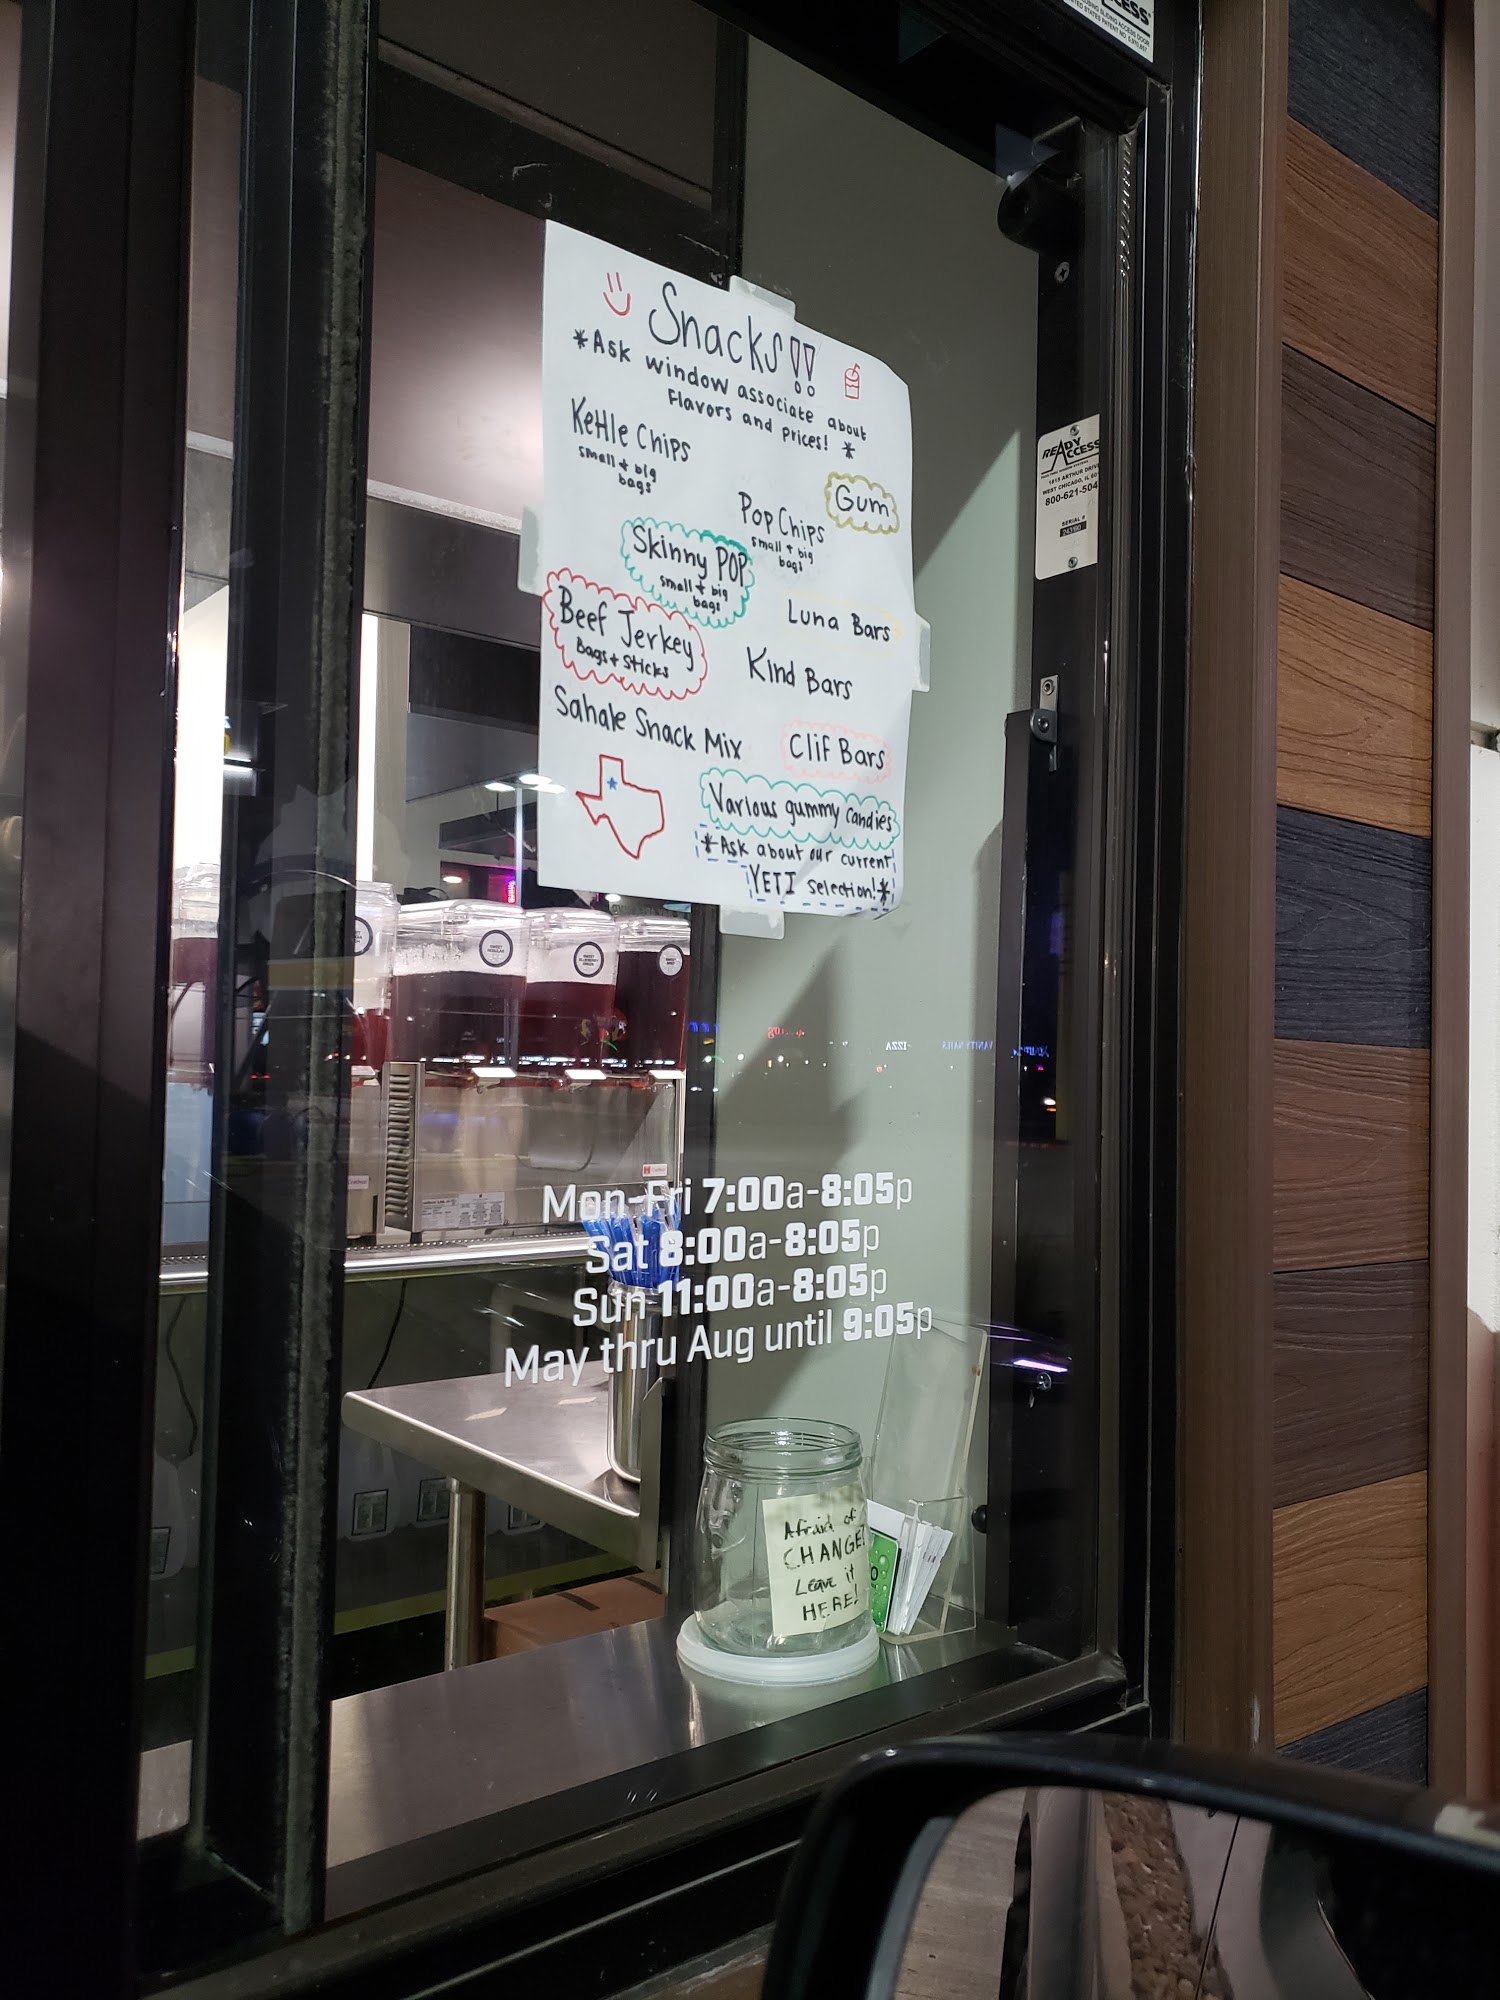 Snacks!!
*Ask window associate about
Flavors and prices! *
Kettle Chips
small + big
bags
Gum
Pop Chips
small + big
bags
Skinny POP
small + big
bags
Beef Jerkey
Bags + Sticks
Luna Bars
Kind Bars
Sahale Snack Mix
Clif Bars
Various gummy candies
*Ask about our current
YETI selection!*
READY
ACCESS
1815 ARTHUR DRIV
WEST CHICAGO, IL 60
800-621-504
SERIAL #
Mon-Fri 7:00a-8:05p
Sat 8:00a-8:05p
Sun 11:00a-8:05p
May thru Aug until 9:05p
Afraid of
CHANGE?
Leave it
HERE!